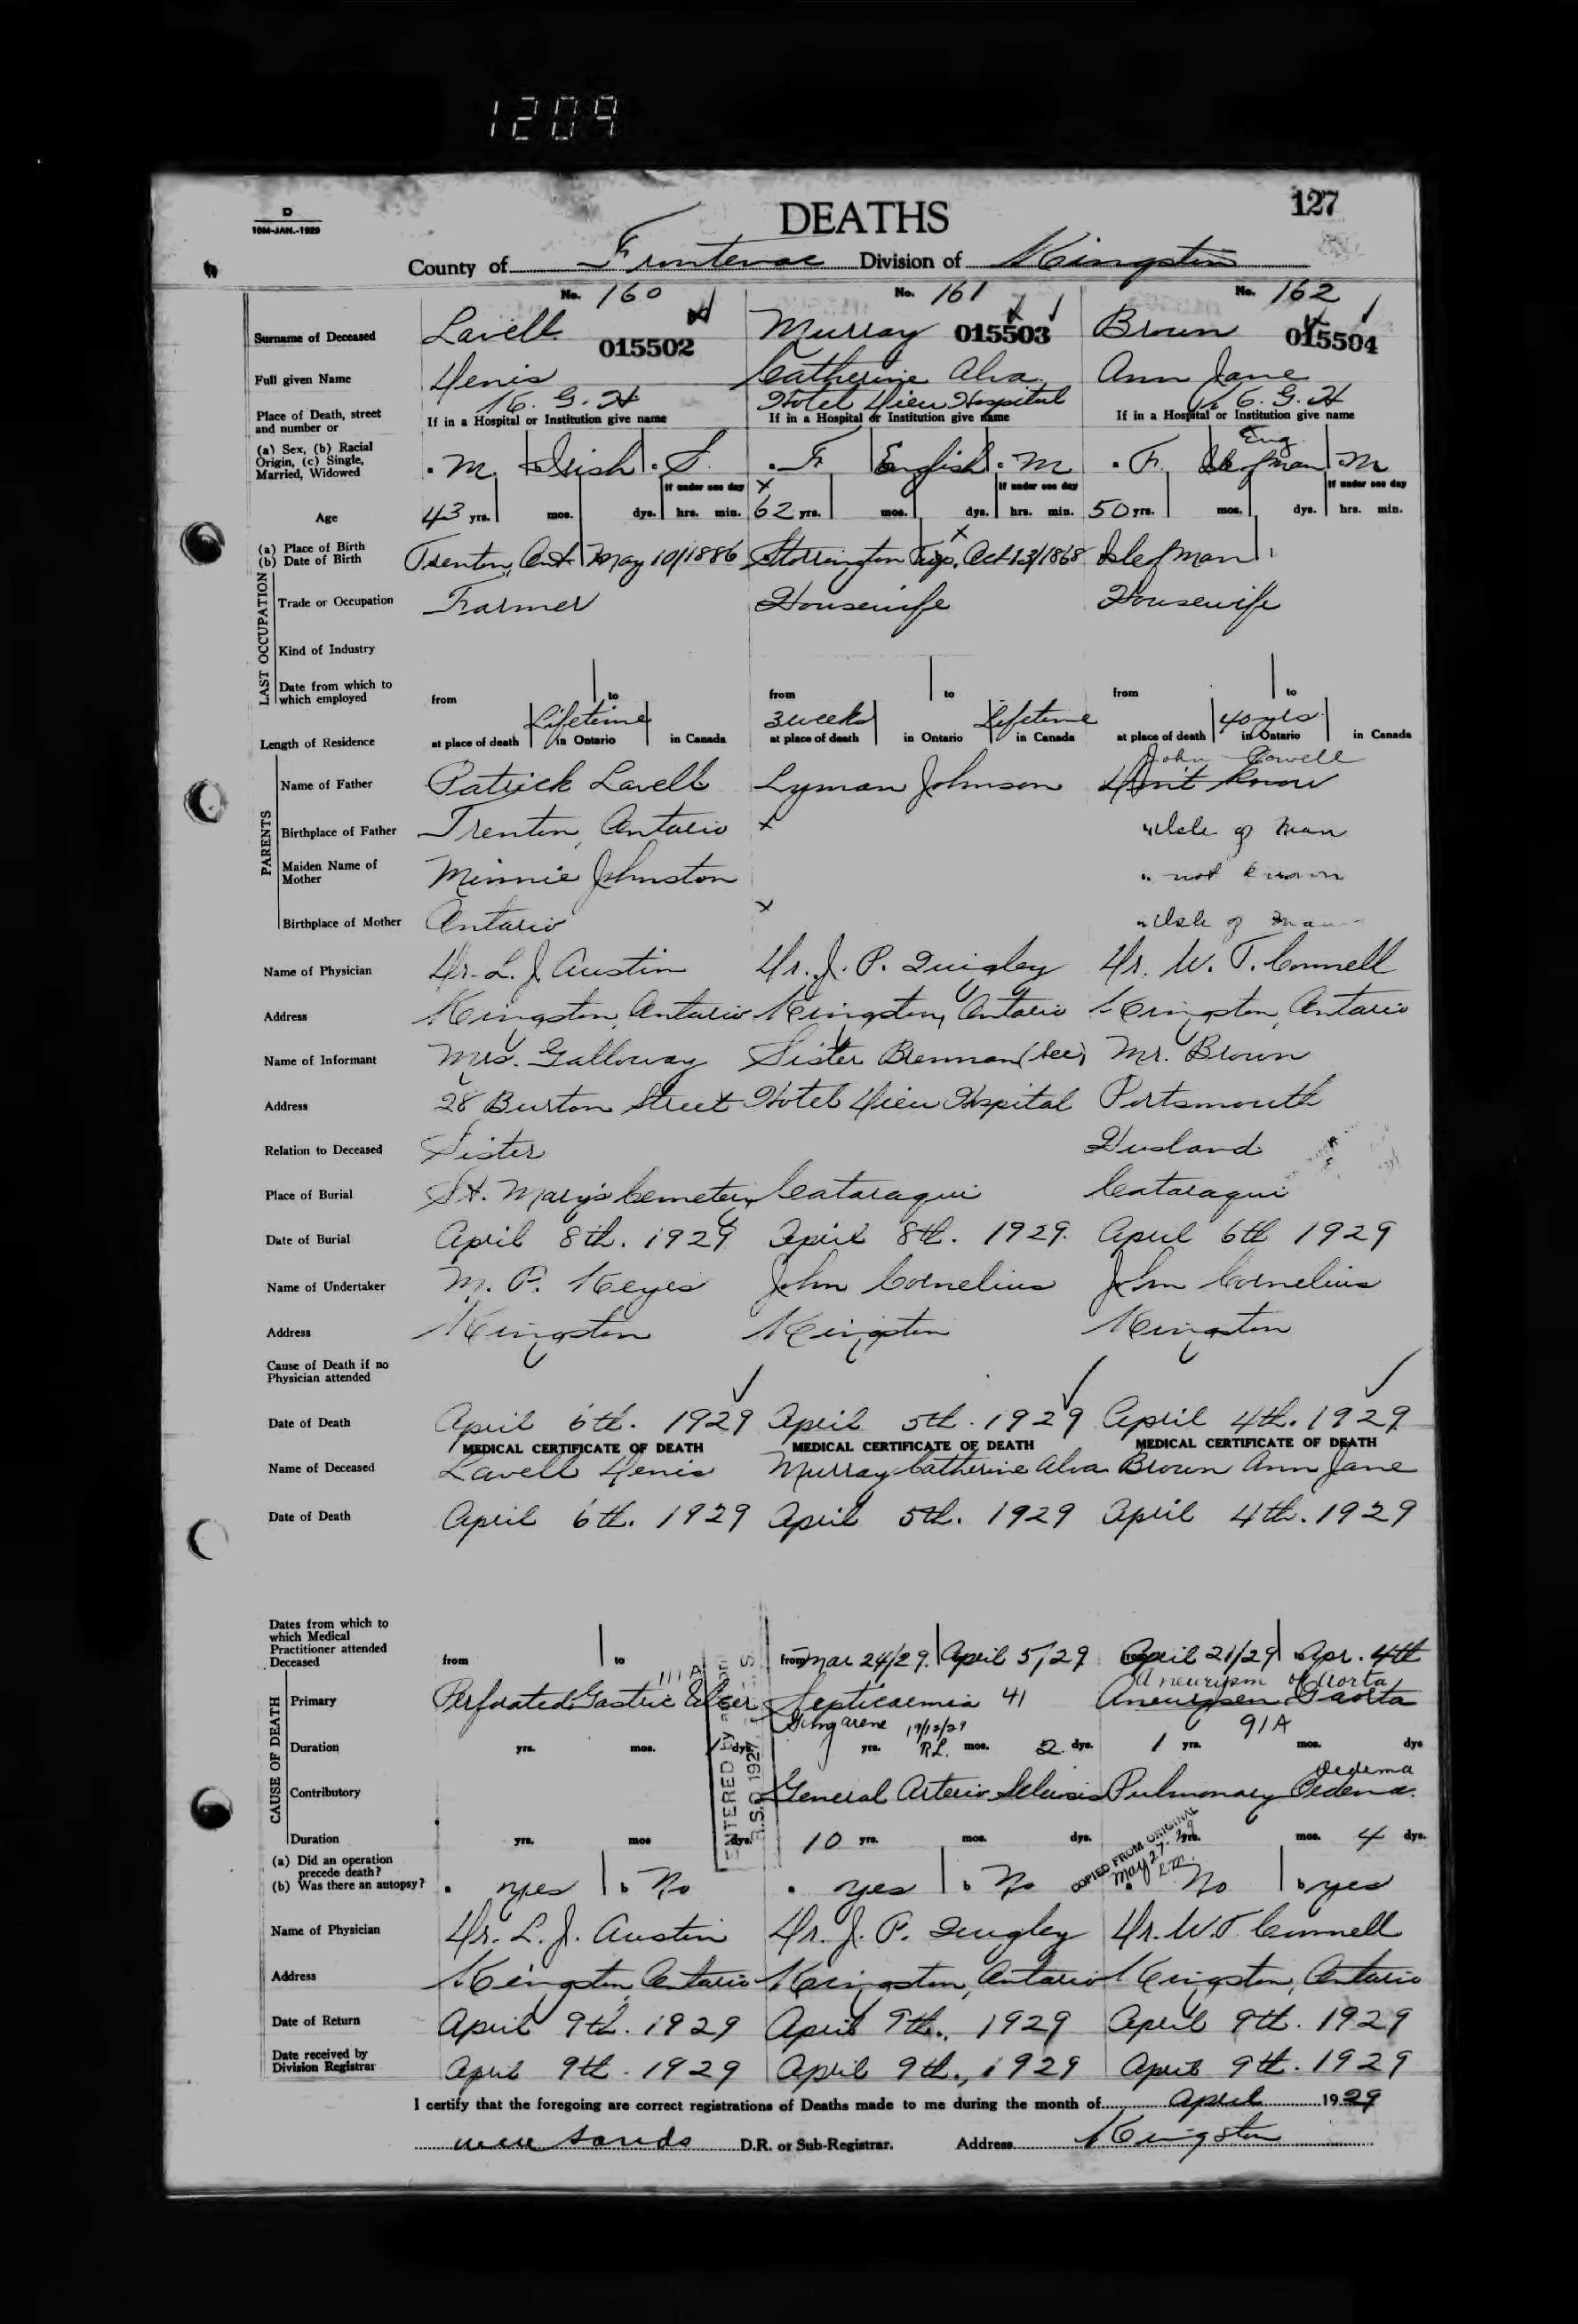 1209
D
10M-JAN.-1929
DEATHS
127
County of Frontenac Division of Kingston
No. 160 No. 161 No. 162
Surname of Deceased Lavell 015502 Murray 015503 Brown 015504
Full given Name Denis Catherine Alva Ann Jane
Place of Death, street and number or K. G. H Hotel Dieu Hospital K. G. H
If in a Hospital or Institution give name If in a Hospital or Institution give name If in a Hospital or Institution give name
(a) Sex, (b) Racial Origin, (c) Single, Married, Widowed M. Irish S. F English M F. Eng. Isle of man M
If under one day If under one day If under one day
Age 43 yrs. mos. dys. hrs. min. 62 yrs. mos. dys. hrs. min. 50 yrs. mos. dys. hrs. min.
(a) Place of Birth (b) Date of Birth Trenton, Ont. May 10/1886 Storrington Twp. Oct 13/1868 Isle of man
LAST OCCUPATION
Trade or Occupation Farmer Housewife Housewife
Kind of Industry
Date from which to which employed from to from to from to
Lifetime 3 weeks Lifetime 40 yrs.
Length of Residence at place of death in Ontario in Canada at place of death in Ontario in Canada at place of death in Ontario in Canada
PARENTS
John Cowell
Name of Father Patrick Lavell Lyman Johnson Don't know
Birthplace of Father Trenton, Ontario x Isle of Man
Maiden Name of Mother Minnie Johnston " not known
Birthplace of Mother Ontario x " Isle of Man
Name of Physician Dr. L. J. Austin Dr. J. P. Quigley Dr. W. T. Connell
Address Kingston, Ontario Kingston, Ontario Kingston, Ontario
Name of Informant Mrs. Galloway Sister Brennan (Sec) Mr. Brown
Address 28 Burton Street Hotel Dieu Hospital Portsmouth
Relation to Deceased Sister Husband
Place of Burial St. Mary's Cemetery Cataraqui Cataraqui
Date of Burial April 8th. 1929 April 8th. 1929. April 6th 1929
Name of Undertaker M. P. Keyes John Cornelius John Cornelius
Address Kingston Kingston Kingston
Cause of Death if no Physician attended
Date of Death April 6th. 1929 April 5th. 1929 April 4th. 1929
MEDICAL CERTIFICATE OF DEATH MEDICAL CERTIFICATE OF DEATH MEDICAL CERTIFICATE OF DEATH
Name of Deceased Lavell Denis Murray Catherine Alva Brown Ann Jane
Date of Death April 6th. 1929 April 5th. 1929 April 4th. 1929
Dates from which to which Medical Practitioner attended Deceased from to from Mar 24/29. April 5/29 April 21/29 Apr. 4th
CAUSE OF DEATH
111 A Aneurism of Aorta
Primary Perforated Gastric Ulcer Septicaemia 41 Aneurysm aorta
Gangrene 19/12/29 R.L. 91A
Duration yrs. mos. 1 dys. yrs. mos. 2 dys. 1 yrs. mos. dys
Oedema
Contributory General Arterio Sclerosis Pulmonary Oedema.
Duration yrs. mos dys. 10 yrs. mos. dys. yrs. mos. 4 dys.
ENTERED by
R.S.O. 1927
COPIED FROM ORIGINAL
May 27. 29
L.M.
(a) Did an operation precede death?
(b) Was there an autopsy? yes b No yes b No No b yes
Name of Physician Dr. L. J. Austin Dr. J. P. Quigley Dr. W. T. Connell
Address Kingston, Ontario Kingston, Ontario Kingston, Ontario
Date of Return April 9th. 1929 April 9th. 1929 April 9th. 1929
Date received by Division Registrar April 9th. 1929 April 9th., 1929 April 9th. 1929
I certify that the foregoing are correct registrations of Deaths made to me during the month of April 1929
Sands D.R. or Sub-Registrar. Address Kingston